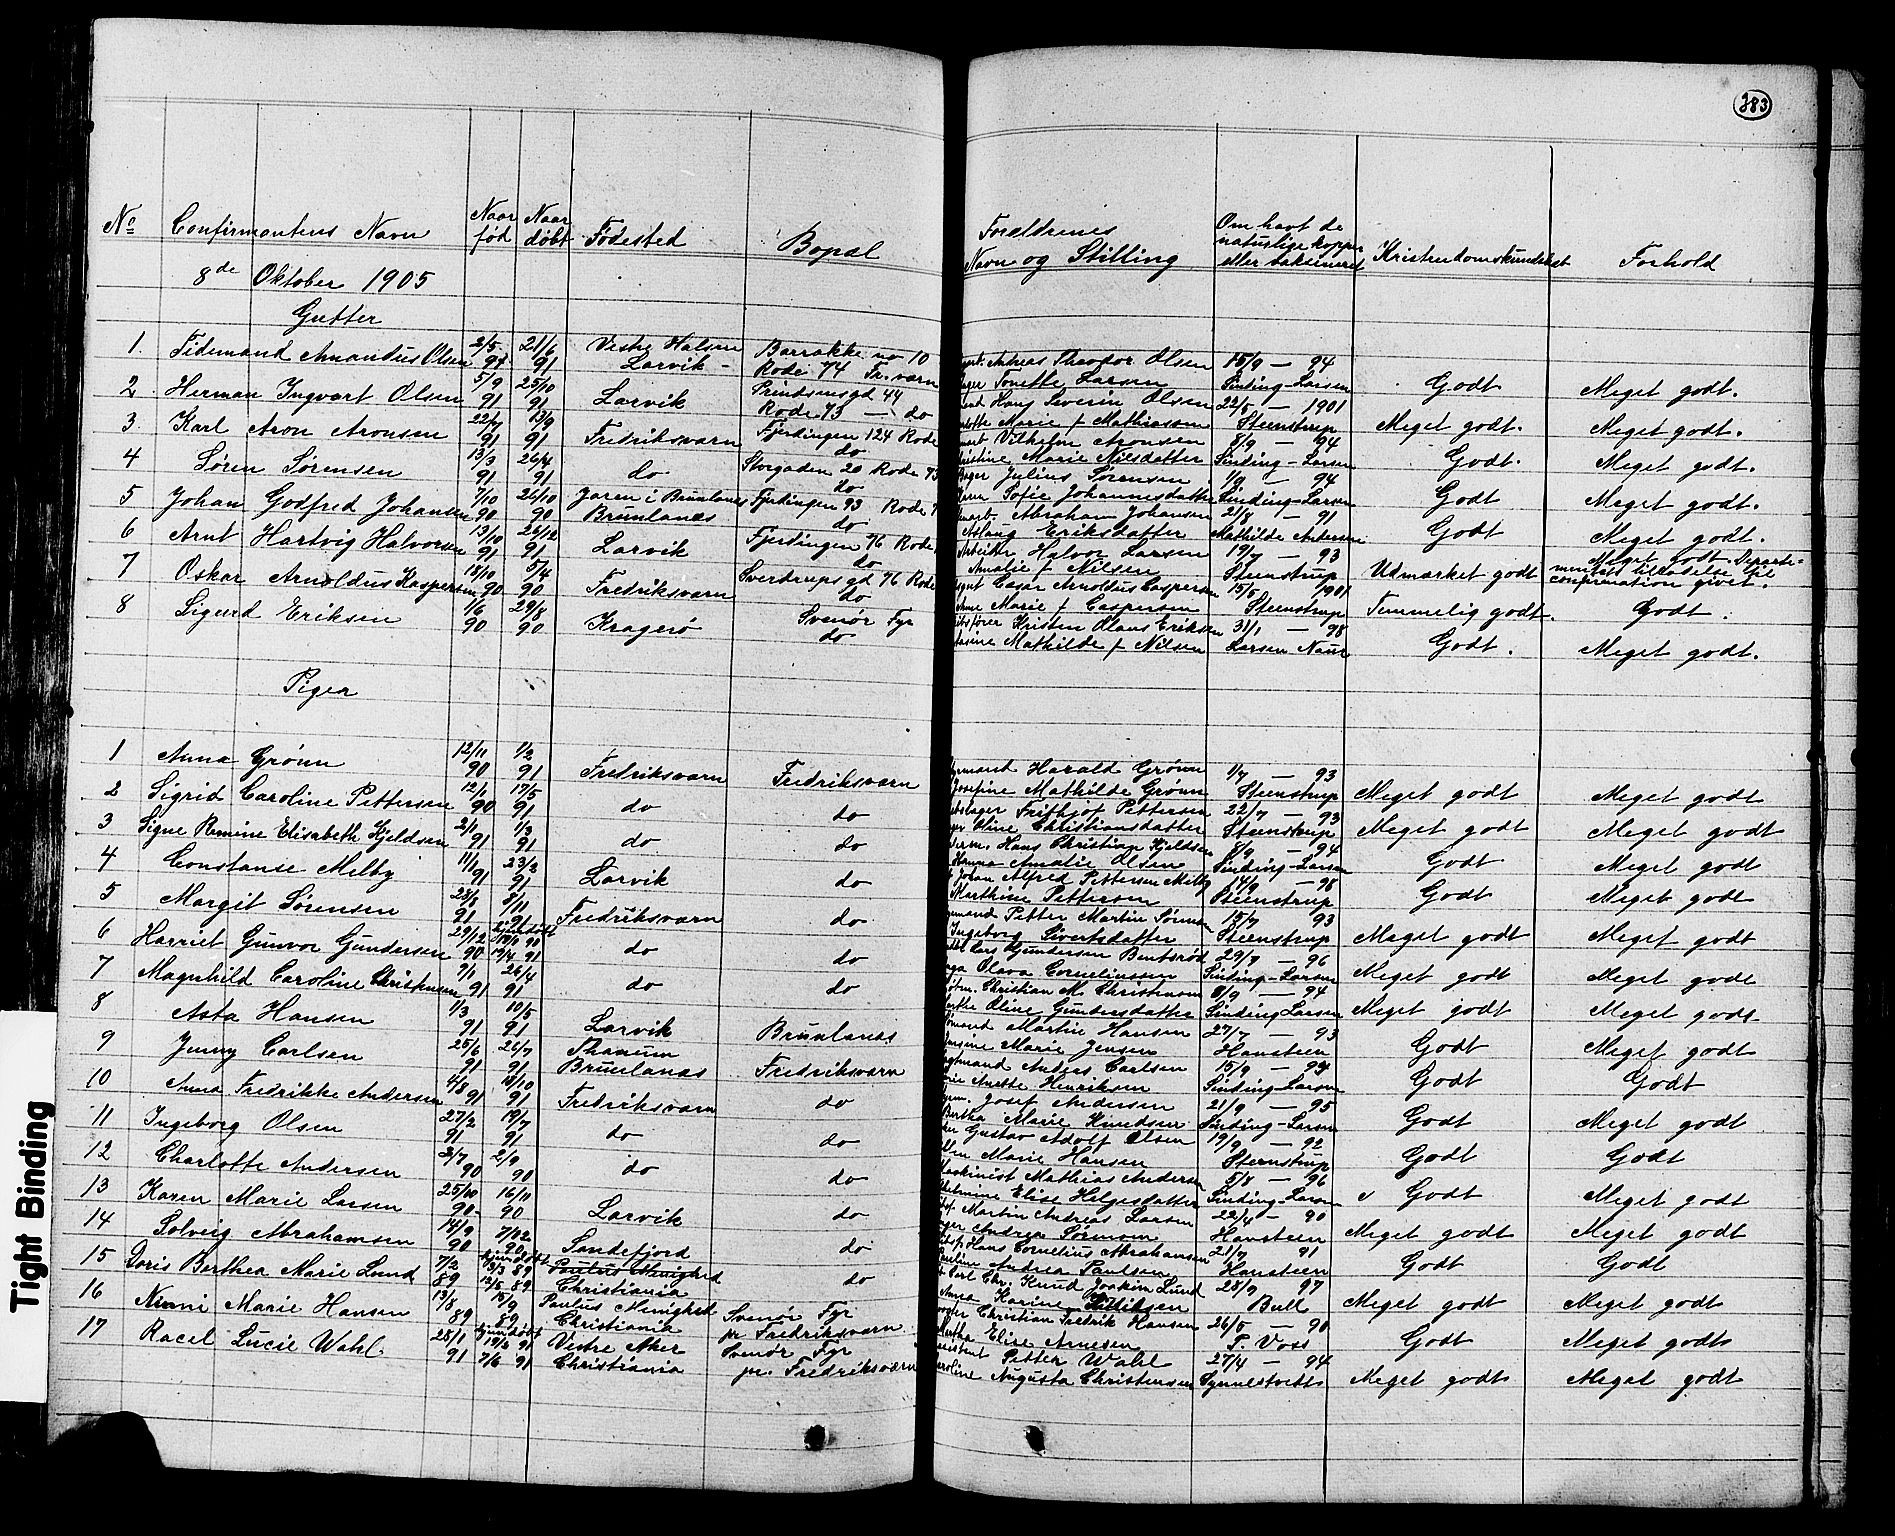 383
No Confirmantens Navn Naar fød Naar døbt Fødested Bopæl Forældrenes Navn og Stilling Om havt de naturlige kopper eller vaksineret Kristendomskundskab Forhold
8de Oktober 1905
Gutter
1. Tidemand Amandus Olsen 2/5 91 21/6 91 Vestre Halsen Larvik Barrakke no 10 Rode 74 Fr.værn Andreas Theodor Olsen Tonette Larsen 15/9 — 94 Sinding-Larsen Godt Meget godt.
2. Herman Ingvart Olsen 5/9 91 25/10 91 Larvik Prindsensgd 44 Rode 73 — do Hans Severin Olsen Marie f Mathiassen 22/8 — 1901 Steenstrup Meget godt. Meget godt.
3. Karl Aron Aronsen 22/7 91 13/9 91 Fredriksværn Fjerdingen 124 Rode do Vilhelm Aronsen Marie Nilsdatter 8/9 — 94 Sinding-Larsen Godt. Meget godt.
4 Søren Sørensen 13/2 91 26/4 91 do Storgaden 20 Rode 73 do Julius Sørensen Sofie Johannesdatter 1/9 — 94 Sinding-Larsen Godt Meget godt.
5 Johan Godfred Johansen 7/10 90 26/10 90 Jaren i Brunlanes Brunlanes Fjerdingen 93 Rode do Abraham Johansen Aslaug Eriksdatter 21/8 — 91 Mathilde Andersen Godt Meget godt.
6 Arnt Hartvig Halvorsen 13/10 91 26/12 91 Larvik Fjerdingen 76 Rode do Arbeider Halvor Larsen Amalie f Nilsen 19/7 — 93 Steenstrup Udmærket godt Meget godt. Departementets tilladelse til confirmation givet
7 Oskar Arnoldus Kaspersen 18/10 90 5/4 90 Fredriksværn Sverdrupsgd 76 Rode do Cæsar Arnoldus Caspersen Marie f Caspersen 15/5 1901 Steenstrup Temmelig godt. Godt.
8 Sigurd Eriksen 1/6 90 29/8 90 Kragerø Svenør Fyr do Kristen Olaus Eriksen Mathilde f Nilsen 31/1 — 98 Larsen Naur Godt. Meget godt.
Piger
1 Anna Grønn 12/11 90 1/2 91 Fredriksværn Fredriksværn Harald Grønn Josefine Mathilde Grønn 1/7 — 93 Steenstrup Meget godt Meget godt
2 Sigrid Caroline Pettersen 12/1 90 17/5 91 do do Frithjof Pettersen Oline Christiansdatter 22/7 — 93 Steenstrup Meget godt Meget godt
3 Signe Romine Elisabeth Kjeldsen 2/1 91 1/3 91 do do Hans Christian Kjeldsen Hanna Amalie Olsen 8/9 — 94 Sinding-Larsen Godt Meget godt
4 Constanse Melby 11/1 91 23/3 91 Larvik do Johan Alfred Pettersen Melby Marthine Pettersen 14/9 — 98 Steenstrup Godt Meget godt
5 Margit Sørensen 91 91 Fredriksværn do Petter Martin Ingeborg Sivertsdatter 15/7 93 Steenstrup Meget godt Meget godt
6 Harriet Gunvor Gundersen 29/12 90 hjemdøbt 19/4 91 do do Lars Gundersen Bentsrød Olava Corneliussen 29/7 — 96 Sinding-Larsen Meget godt Meget godt
7 Magnhild Caroline Christensen 9/1 91 26/4 91 do do Christian M. Christensen Oline Gundersdatter 8/9 — 94 Sinding Larsen Meget godt Meget godt
8 Asta Hansen 1/3 91 10/5 91 Larvik Brunlanes Martin Hansen Marie Jensen 27/7 — 93 Hansteen Godt Meget godt
9 Jenny Carlsen 25/6 91 26/7 91 Thanum Brunlanes Fredriksværn Anders Carlsen Anette Henriksen 15/9 — 94 Sinding-Larsen Godt Godt
10 Anna Fredrikke Andersen 4/8 91 18/10 91 Fredriksværn do Josef Andersen Bertha Marie Knudsen 21/9 — 95 Sinding-Larsen Godt Meget godt
11 Ingeborg Olsen 27/2 91 19/7 91 do do Gustav Adolf Olsen Marie Hansen 19/9 — 92 Steenstrup Godt Godt
12 Charlotte Andersen 2/7 90 2/9 90 do do Maskinist Mathias Andersen Elise Helgesdatter 5/8 — 96 Sinding-Larsen Godt Meget godt
13 Karen Marie Larsen 25/10 90 16/11 90 Larvik do Martin Andreas Larsen Andrea Sørmoen 22/4 — 90 Hansteen Meget godt Meget godt
14 Solveig Abrahamsen 14/9 90 7/12 90 Sandefjord do Hans Cornelius Abrahamsen Andrea Paulsen 21/7 91 Hansteen Godt Godt
15 Doris Berthea Marie Lund 7/2 89 hjemdøbt 13/3 89 12/5 89 Paulus Menighed Christiania do Carl Chr. Knud Joakim Lund Anna Karine 28/7 97 Bull Meget godt Meget godt
16 Ninni Marie Hansen 13/8 89 15/9 89 Paulus Menighed Christiania Svenør Fyr pr Fredriksværn. Christian Fredrik Hansen Elise Arnesen 26/5 — 90 P. Voss Godt Meget godt
17 Racel Lucie Wahl. 28/1 91 hjemdøbt 19/3 91 7/6 91 Vestre Aker Christiania Svenør Fyr pr. Fredriksværn Petter Wahl Augusta Christensen 27/4 — 94 Synnestvedt Meget godt Meget godt
Tight Binding